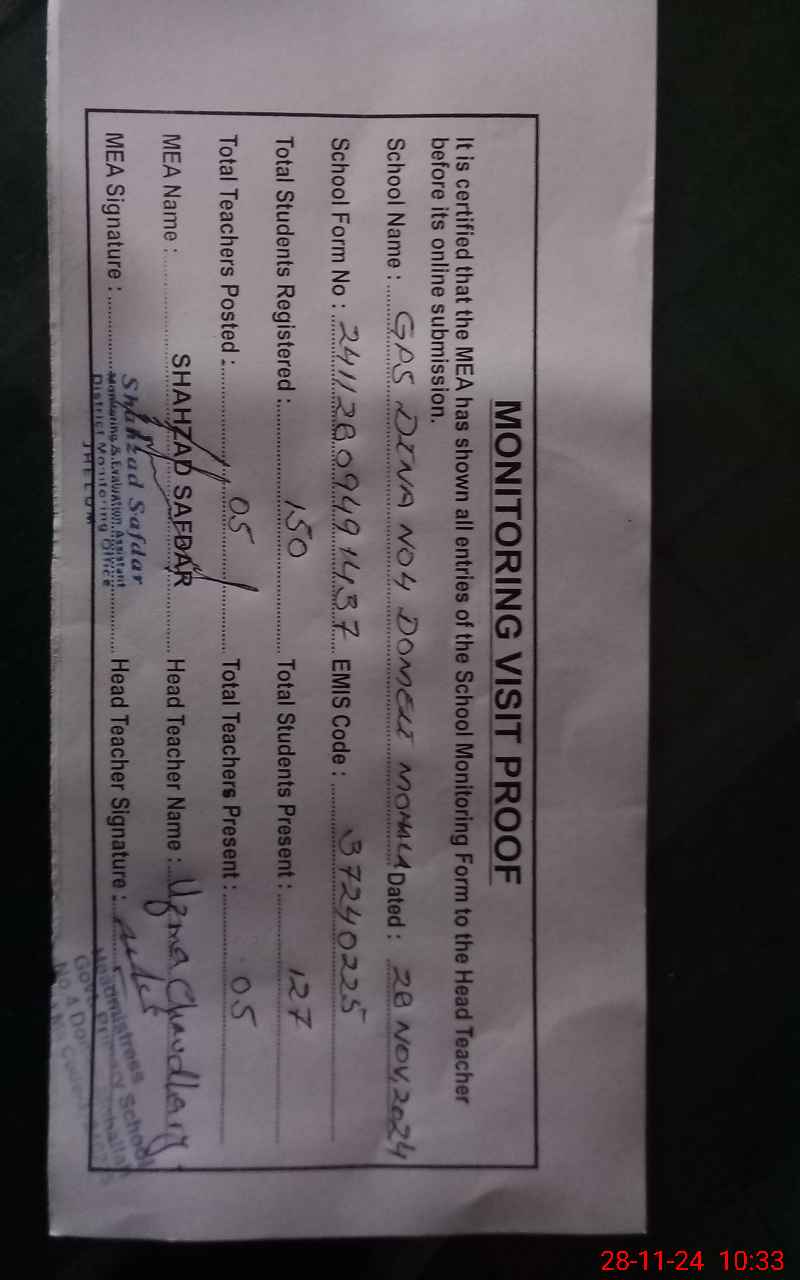 MONITORING VISIT PROOF
It is certified that the MEA has shown all entries of the School Monitoring Form to the Head Teacher
before its online submission.
School Name : GPS DINA NO4 DOMELI MOHALA Dated : 28 NOV, 2024
School Form No : 241128094941437 EMIS Code : 37240225
Total Students Registered : 150 Total Students Present : 127
Total Teachers Posted : 05 Total Teachers Present : 05
MEA Name : SHAHZAD SAFDAR Head Teacher Name : Uzma Chaudhary
MEA Signature : Head Teacher Signature :
Shahzad Safdar
Monitoring & Evaluation Assistant
District Monitoring Office
JHELUM
Headmistress
Govt. Primary School
No.4
28-11-24 10:33